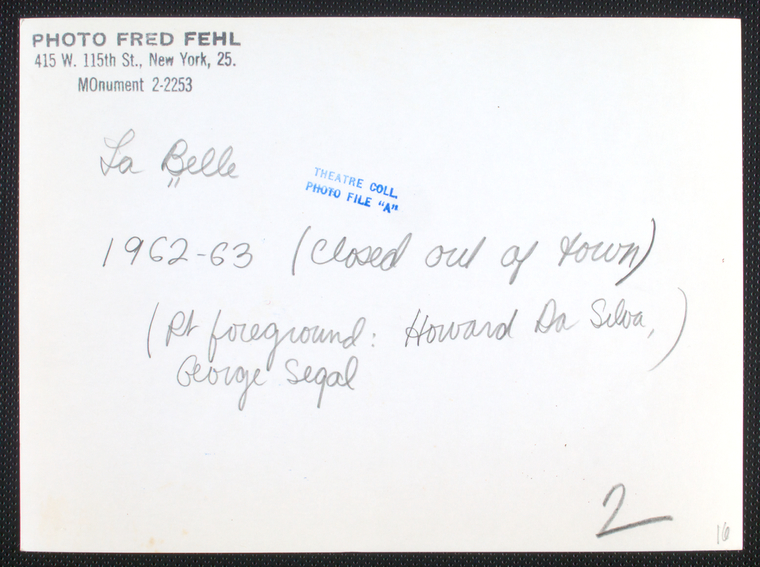 PHOTO FRED FEHL
415 W. 115th St., New York, 25.
MOnument 2-2253
La Belle
"
THEATRE COLL.
PHOTO FILE "A"
1962-63 (Closed out of town)
(Rt foreground: Howard Da Silva,)
George Segal
2
16